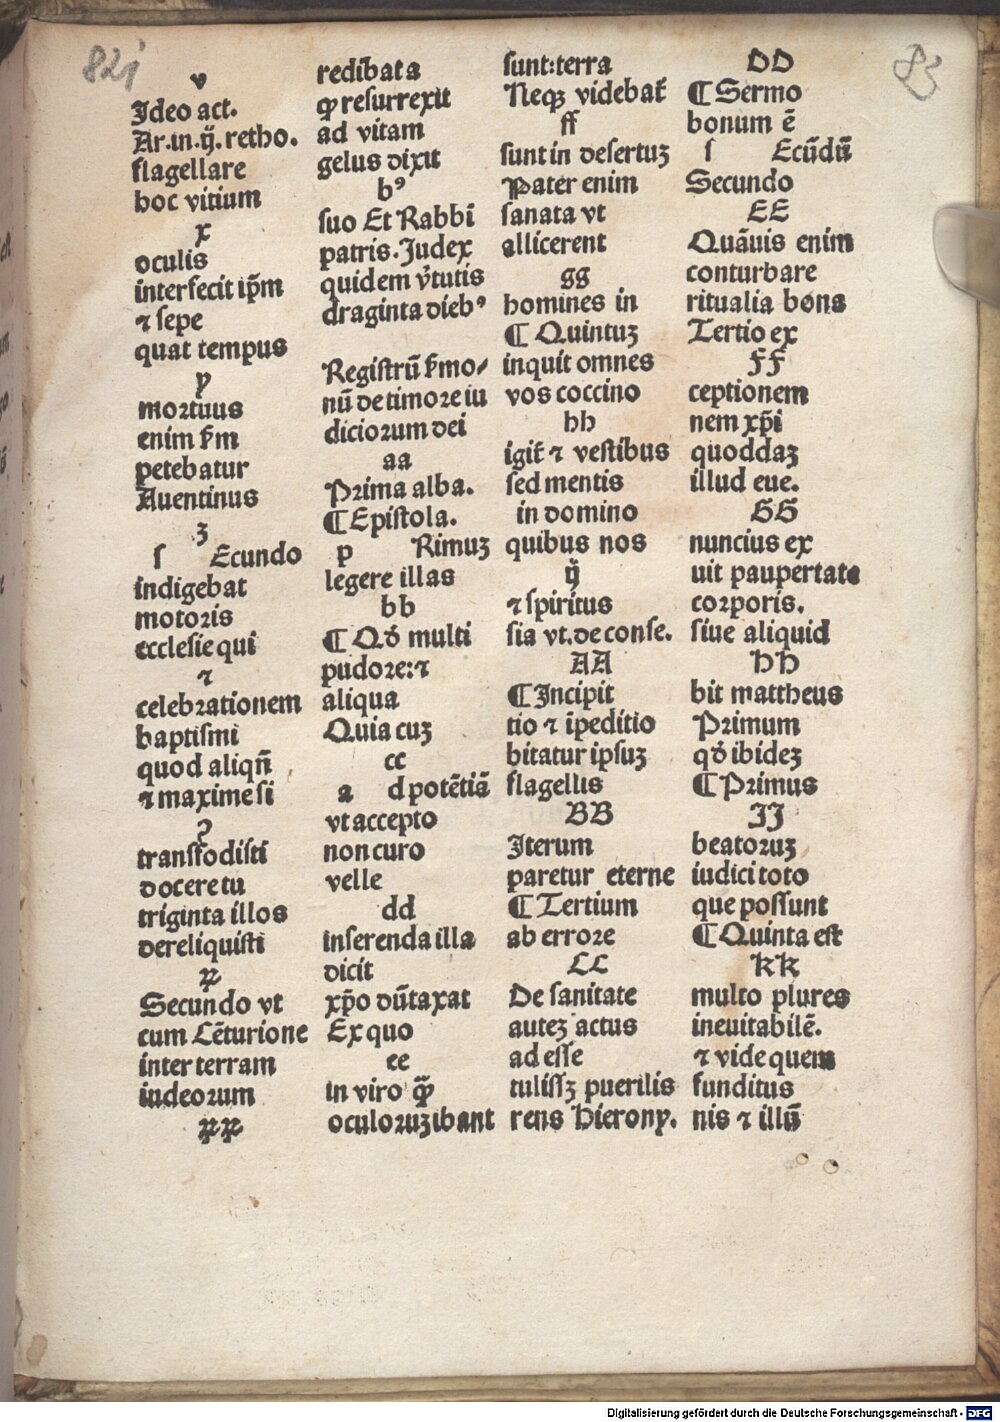 821
83
v
Ideo act.
Ar.in.ij. retho.
flagellare
hoc vitium
x
oculis
interfecit ip̄m
⁊ sepe
quat tempus
y
mortuus
enim s̄m
petebatur
Auentinus
ʒ
ſ Ecundo
indigebat
motoris
ecclesie qui
⁊
celebrationem
baptiſmi
quod aliqn̄
⁊ maxime ſi
ꝯ
transfodiſti
docere tu
triginta illos
dereliquiſti
ꝝ
Secundo vt
cum Cēturione
inter terram
iudeorum
ꝝꝝ
redibat a
ꝙ resurrexit
ad vitam
gelus dixit
b⁹
ſuo Et Rabbi
patris. Judex
quidem v̓tutis
draginta dieb⁹
Regiſtrū ẜmo/
nū de timore iu
diciorum dei
aa
Prima alba.
¶ Epiſtola.
p Rimuʒ
legere illas
bb
¶ Qđ multi
pudore: ⁊
aliqua
Quia cuʒ
cc
a d potētiā
vt accepto
non curo
velle
dd
inſerenda illa
dicit
xp̄o dūtaxat
Ex quo
ee
in viro ꝙ̄
oculoruʒ ibant
ſunt: terra
Neqʒ videbat᷑
ff
ſunt in deſertuʒ
Pater enim
ſanata vt
allicerent
gg
homines in
¶ Quintuʒ
inquit omnes
vos coccino
hh
igit᷑ ⁊ veſtibus
ſed mentis
in domino
quibus nos
ij
⁊ ſpiritus
ſia vt. de conſe.
AA
¶ Incipit
tio ⁊ īpeditio
bitatur ipſuʒ
flagellis
BB
Iterum
paretur eterne
¶ Tertium
ab errore
CC
De ſanitate
auteʒ actus
ad eſſe
tuliſſʒ puerilis
rens Hierony.
DD
¶ Sermo
bonum ē
ſ Ecūdū
Secundo
EE
Quāuis enim
conturbare
ritualia bona
Tertio ex
FF
ceptionem
nem xp̄i
quoddaʒ
illud eue.
GG
nuncius ex
uit paupertate
corporis.
ſiue aliquid
HH
bit mattheus
Primum
qđ ibideʒ
¶ Primus
JJ
beatoruʒ
iudici toto
que poſſunt
¶ Quinta eſt
KK
multo plures
ineuitabilē.
⁊ vide quem
funditus
nis ⁊ illū
Digitalisierung gefördert durch die Deutsche Forschungsgemeinschaft - DFG